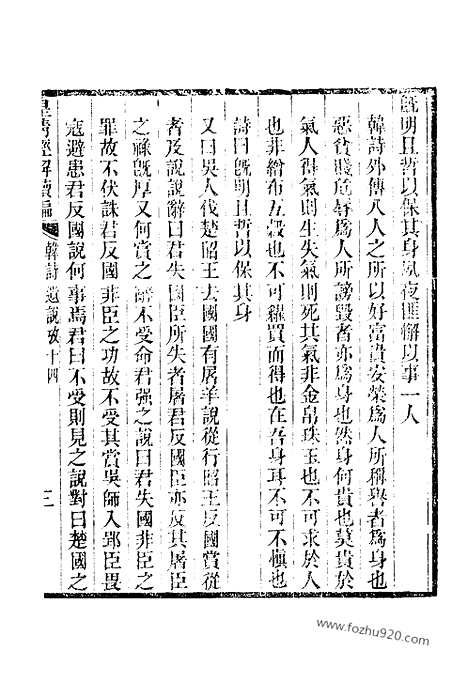 旣明且哲以保其身夙夜匪懈以事一人
韓詩外傳八人之所以好富貴安榮爲人所稱譽者爲身也
惡貧賤危辱爲人所謗毀者亦爲身也然身何貴也莫貴於
氣人得氣則生失氣則死其氣非金帛珠玉也不可求於人
也非繒布五穀也不可糴買而得也在吾身耳不可不愼也
詩曰旣明且哲以保其身
又曰吳人伐楚昭王去國國有屠羊說從行昭王反國賞從
者及說說辭曰君失國臣所失者屠君反國臣亦反其屠臣
之祿旣厚又何賞之辭不受命君强之說曰君失國非臣之
罪故不伏誅君反國非臣之功故不受其賞吳師入郢臣畏
寇避患君反國說何事焉君曰不受則見之說對曰楚國之
皇淸經解續編
韓詩遺說攷十四
三
www.fozhu920.com